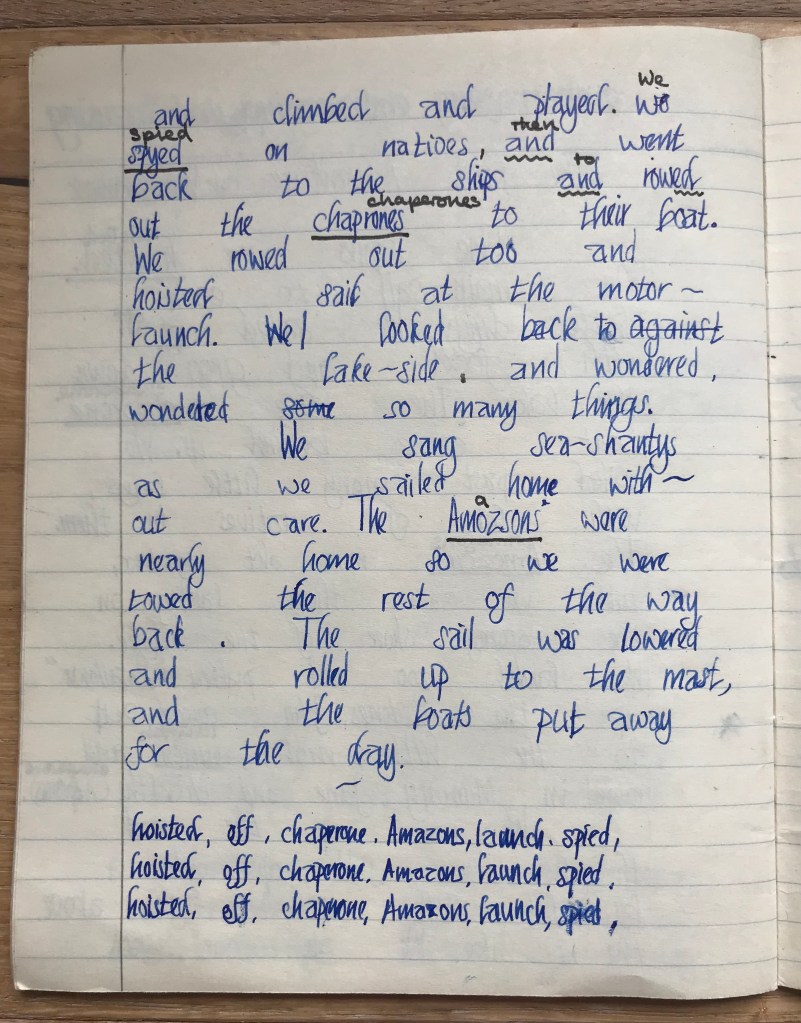 We
and climbed and played. We
spied then
spyed on natives, and went
to
back to the ships and rowed
chaperones
out the chaprones to their boat.
We rowed out too and
hoisted sail at the motor~
launch. We looked back to against
the lake~side. and wondered,
wondeted some so many things.
We sang sea~shantys
as we sailed home with~
a
out care. The Amozsons were
nearly home so we were
towed the rest of the way
back. The sail was lowered
and rolled up to the mast,
and the boats put away
for the dray.
~
hoisted, off, chaperone. Amazons, launch. spied,
hoisted, off, chaperone. Amazons, launch, spied.
hoisted, off. chaperone, Amazons, launch, spied,